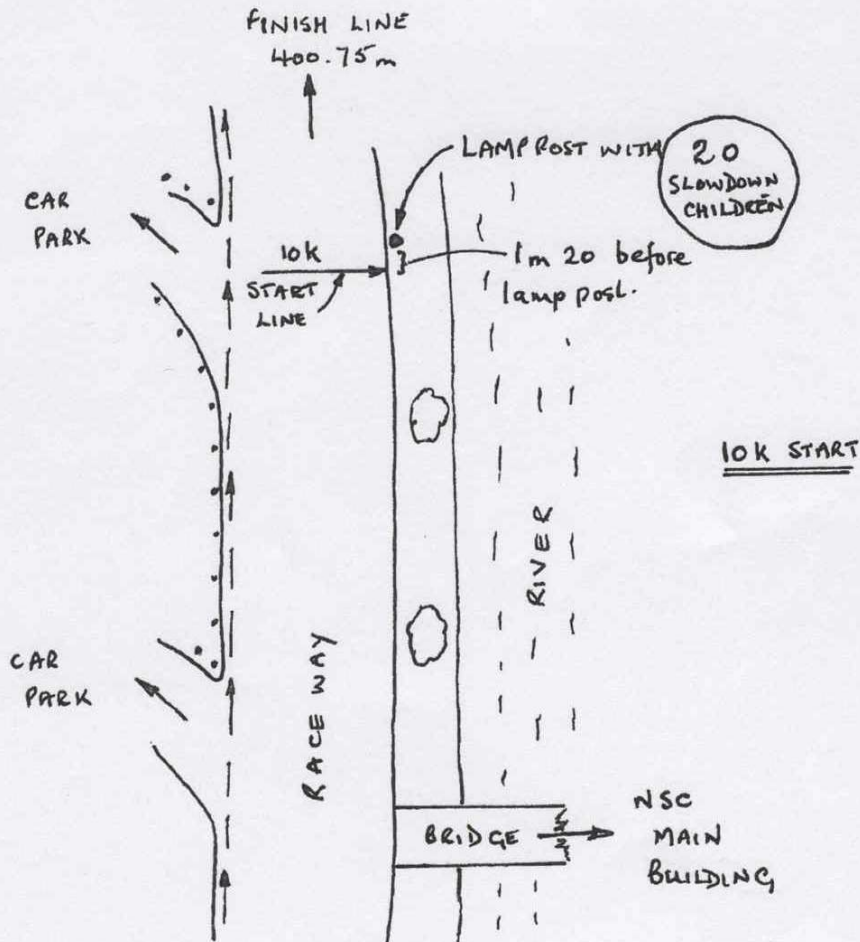 FINISH LINE
400.75m
LAMP POST WITH
20
SLOWDOWN
CHILDREN
CAR
PARK
10k
START
LINE
1m 20 before
lamp post.
10K START
RIVER
CAR
PARK
RACE WAY
BRIDGE
NSC
MAIN
BUILDING